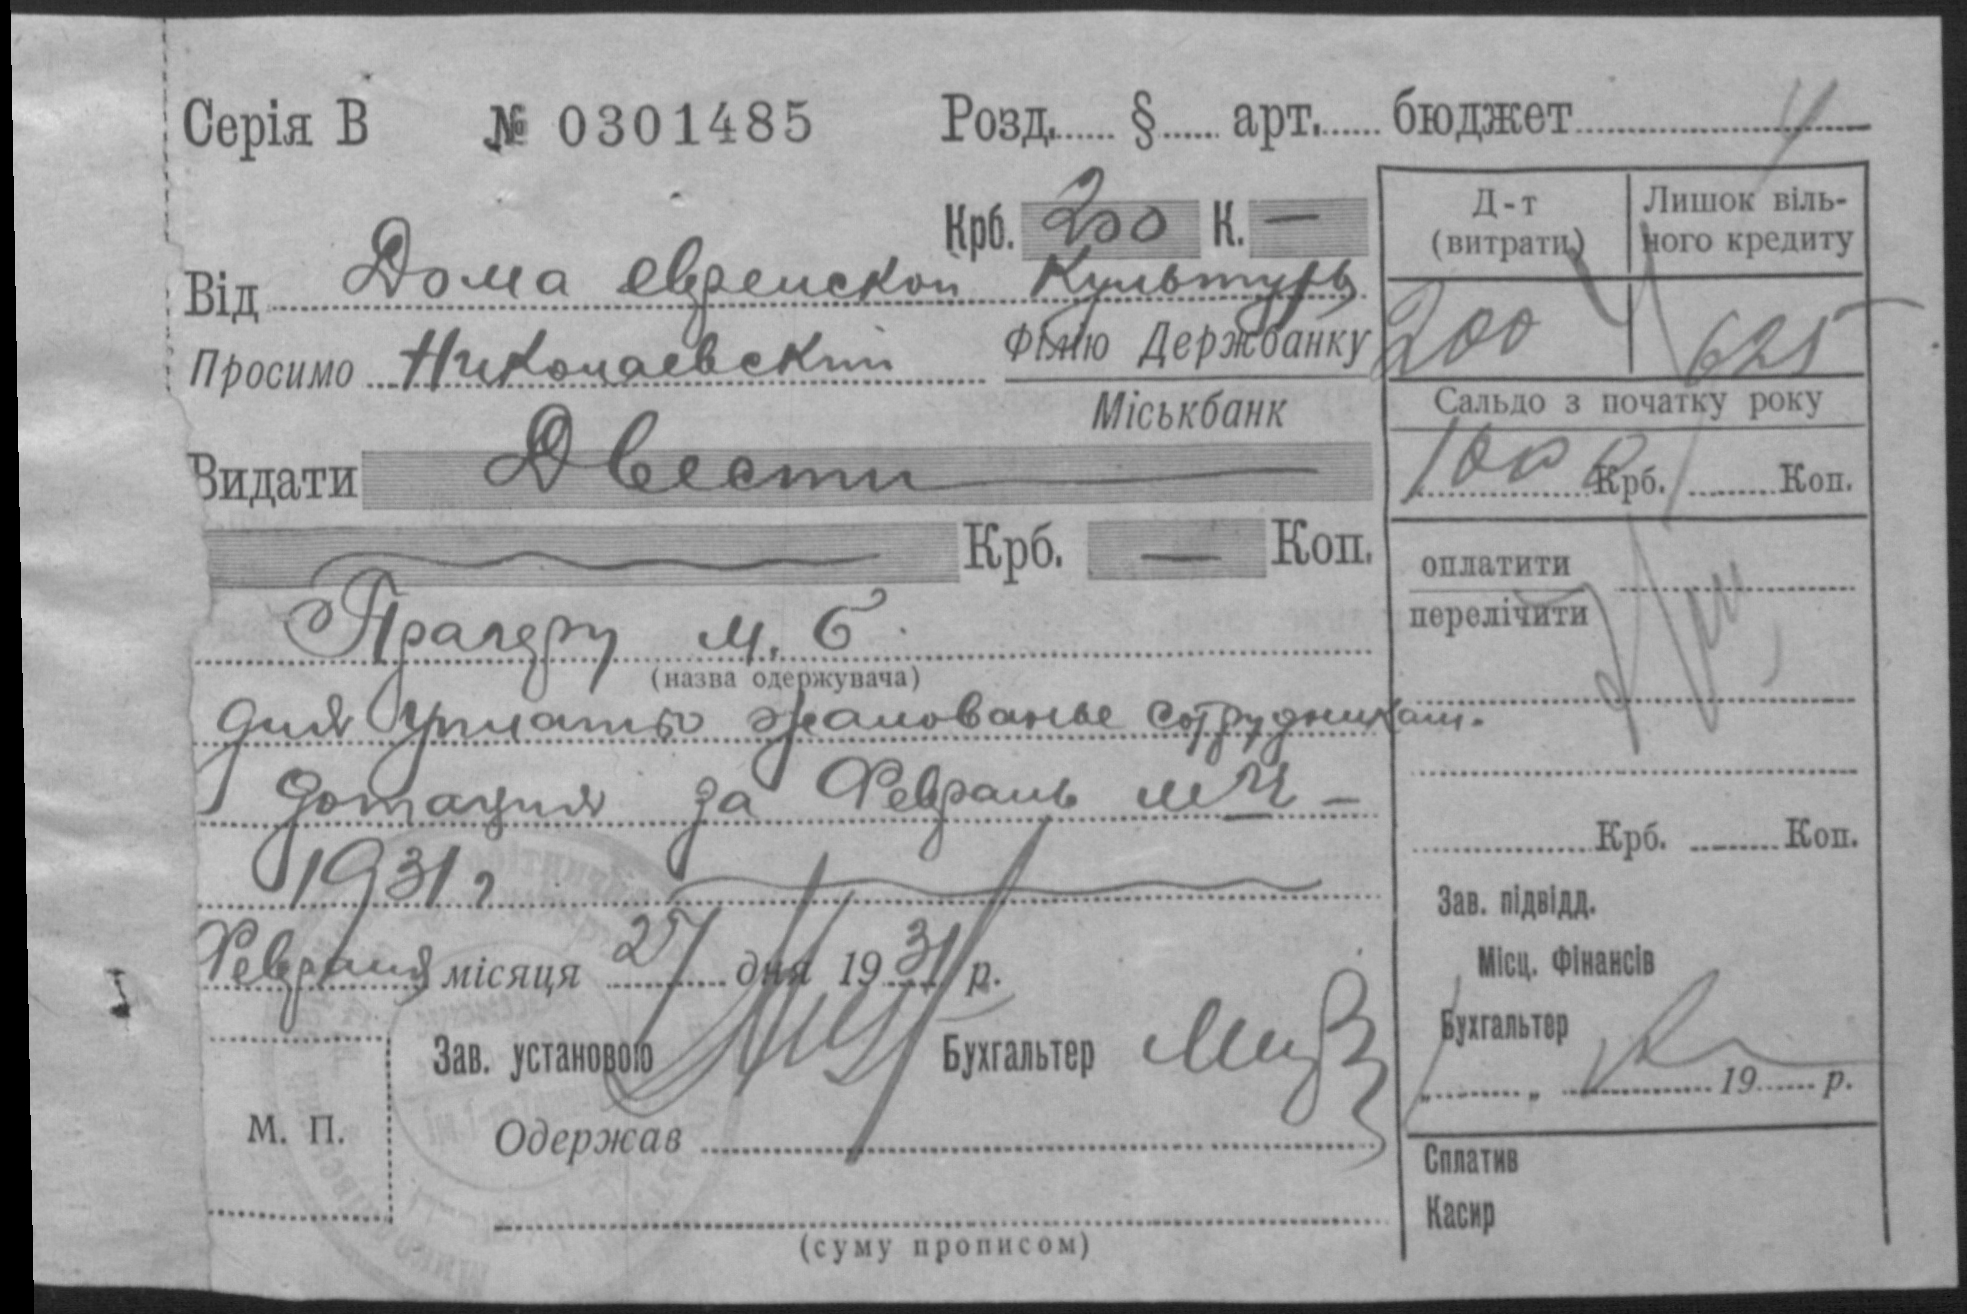 Серія В № 0301485 Розд. § арт. бюджет
Крб. 200 К. —
Від Дома еврейской Культуры
Просимо Николаевский Філію Держбанку
Міськбанк
Видати Двести
Крб. — Коп.
Прагеру М. Б.
(назва одержувача)
для уплаты жалованье сотрудникам.
дотация за Февраль м-ц –
1931 г
Февраля місяця 25 дня 1931 р.
Зав. установою Бухгальтер
М. П.
Одержав
(суму прописом)
Д-т (витрати) Лишок віль-
ного кредиту
200 625
Сальдо з початку року
1000 Крб. Коп.
оплатити
перелічити
Крб. Коп.
Зав. підвідд.
Місц. Фінансів
Бухгальтер
„ „ 19 р.
Сплатив
Касир